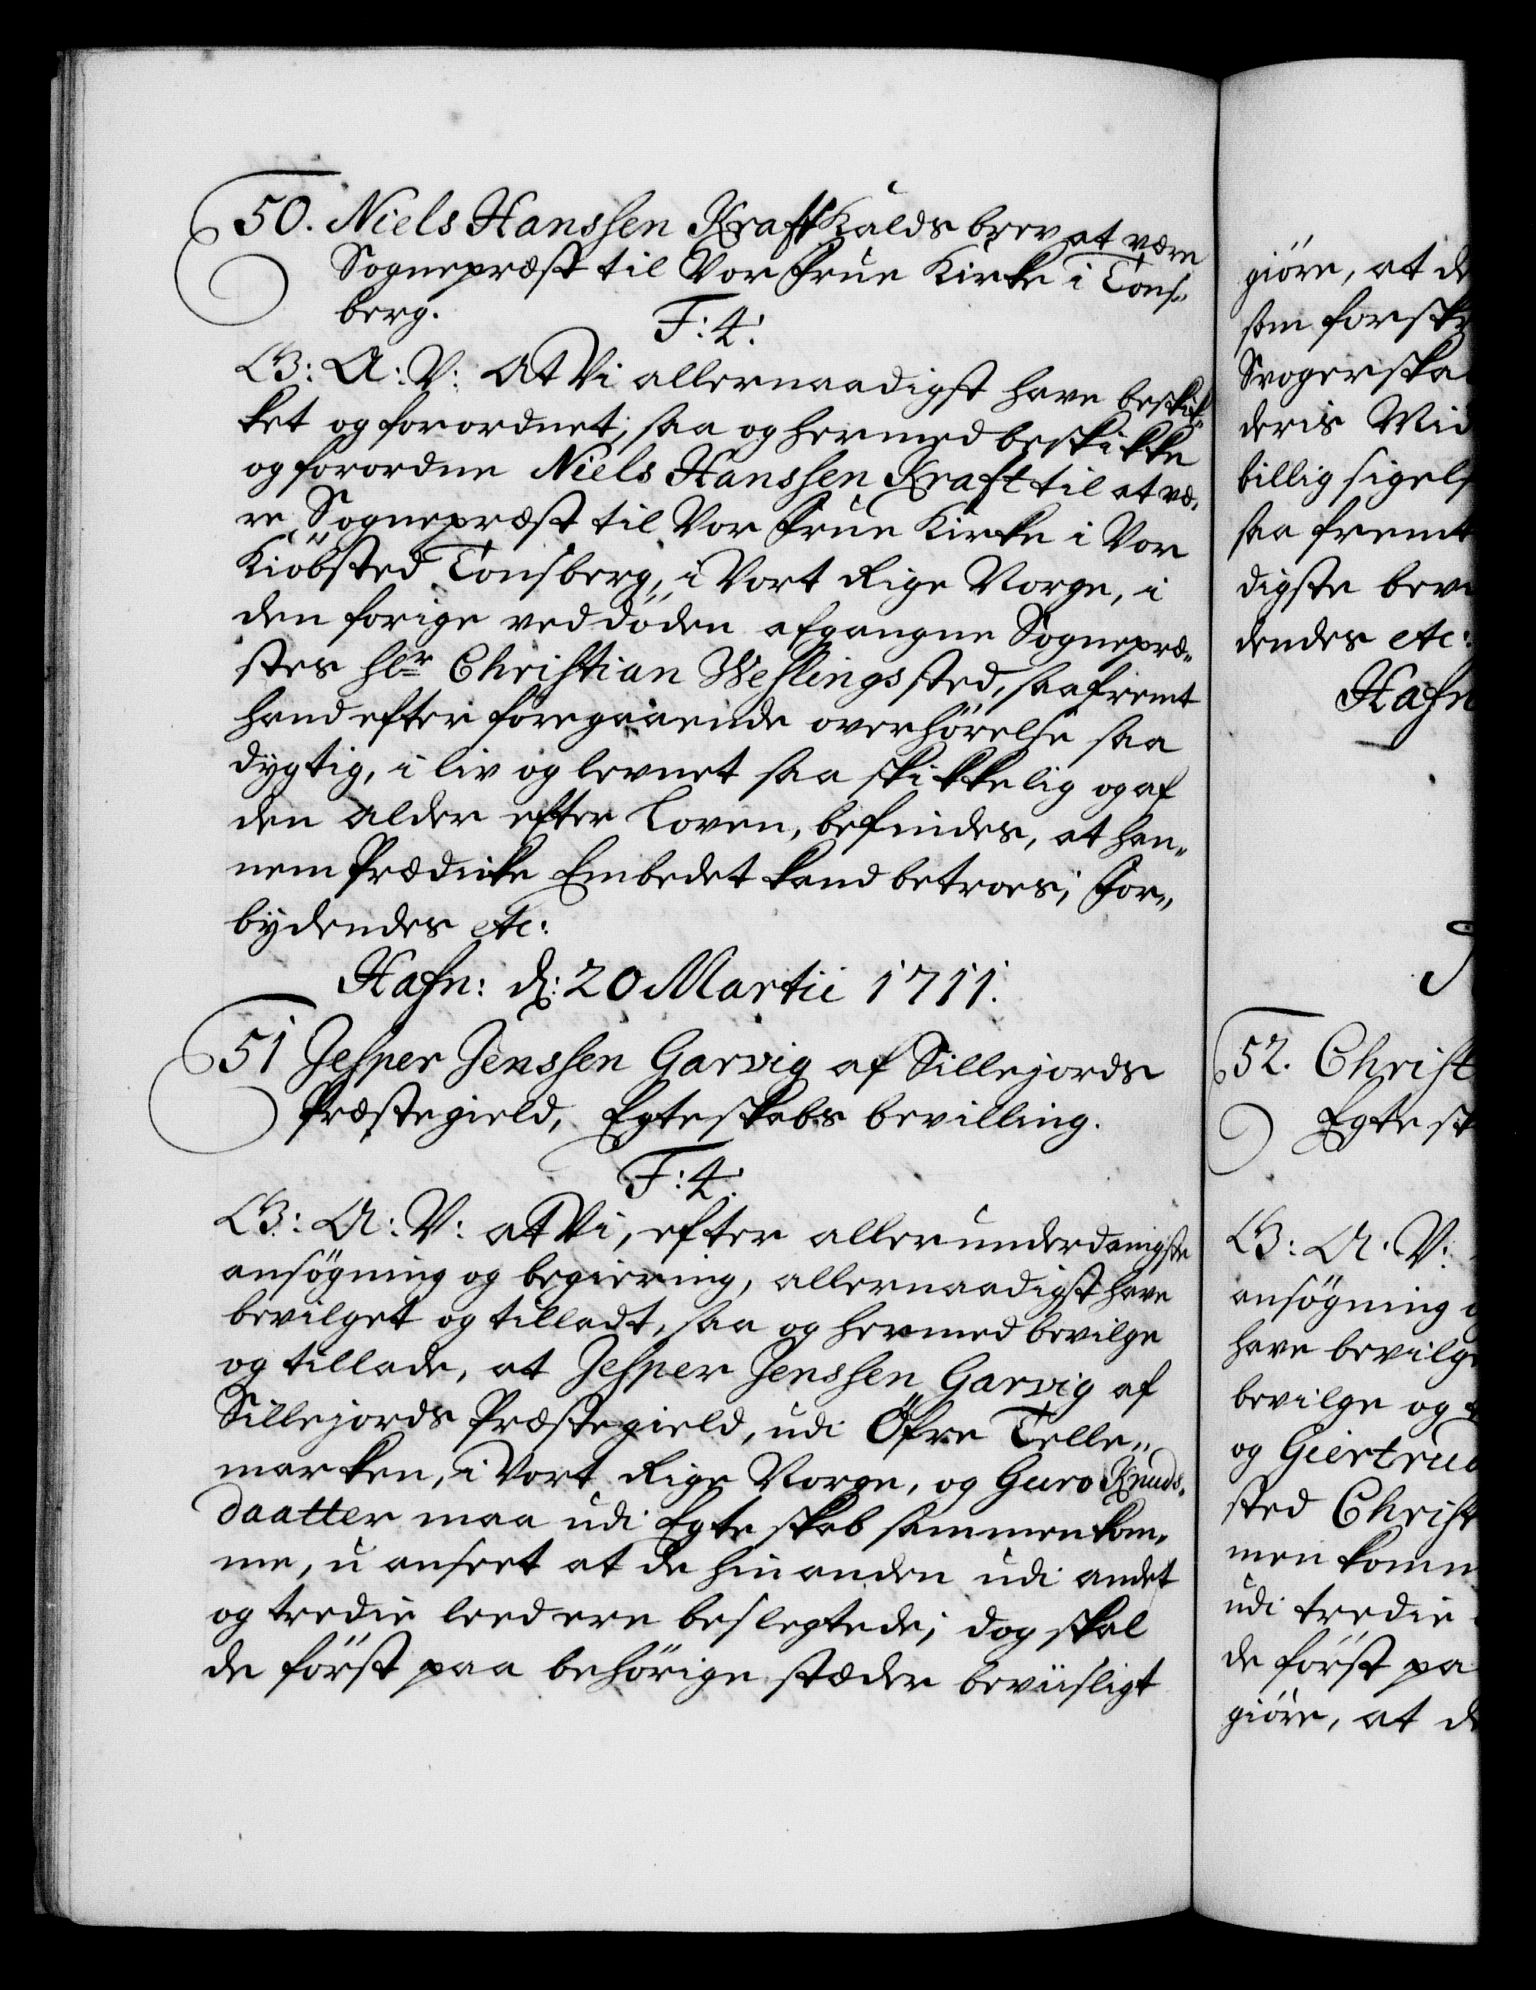 50. Niels Hanssen Kraft Kalds brev at være
Sognepræst til Vor Frue Kirke i Tons„
berg.
F: 4.
G: A: V: At Vi allernaadigst have beskik„
ket og forordnet, saa og hermed beskikke
og forordne Niels Hanssen Kraft til at væ„
re Sognepræst til Vor Frue Kirke i Vor
Kiöbsted Tonsberg, i Vort Rige Norge, i
den forige ved döden afgangne Sognepræ„
stes Hr Christian Weslings sted, saafremt
hand efter foregaaende overhörelse saa
dygtig, i liv og levnet saa skikkelig og af
den Alder efter Loven, befindes, at han„
nem Prædicke Embedet kand betroes; For„
bydendes etc:
Hafn: d: 20 Martii 1711.
51 Jesper Jenssen Garvig af Sillejords
Præstegield, Egteskabs bevilling.
F: 4.
G: A: V: at Vi, efter allerunderdanigste
ansögning og begiering, allernaadigst have
bevilget og tilladt, saa og hermed bevilge
og tillade, at Jesper Jenssen Garvig af
Sillejords Præstegield, udi Öfre Telle„
marken, i Vort Rige Norge, og Guro Knuds„
daatter maa udi Egteskab sammenkom„
me, u anseet at de hinanden udi andet
og tredie leed ere beslegtede; dog skal
de först paa behörige stæder beviisligt
giöre, at de
som forskr
Svogerska
deris Mid
billig sigels
saa fremt
digste bev
dendes etc:
Hafn
52. Christ
Egtesk
G: A: V:
ansögning o
have bevilge
bevilge og
og Giertrud
sted Christ
men komm
udi tredie
de först pa
giöre, at de